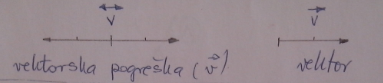 v v
vektorska pogreška (v⃡) vektor